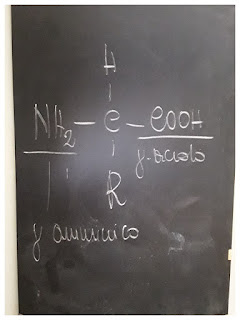 H
NH2 – C – COOH
g. acido
R
g amminico